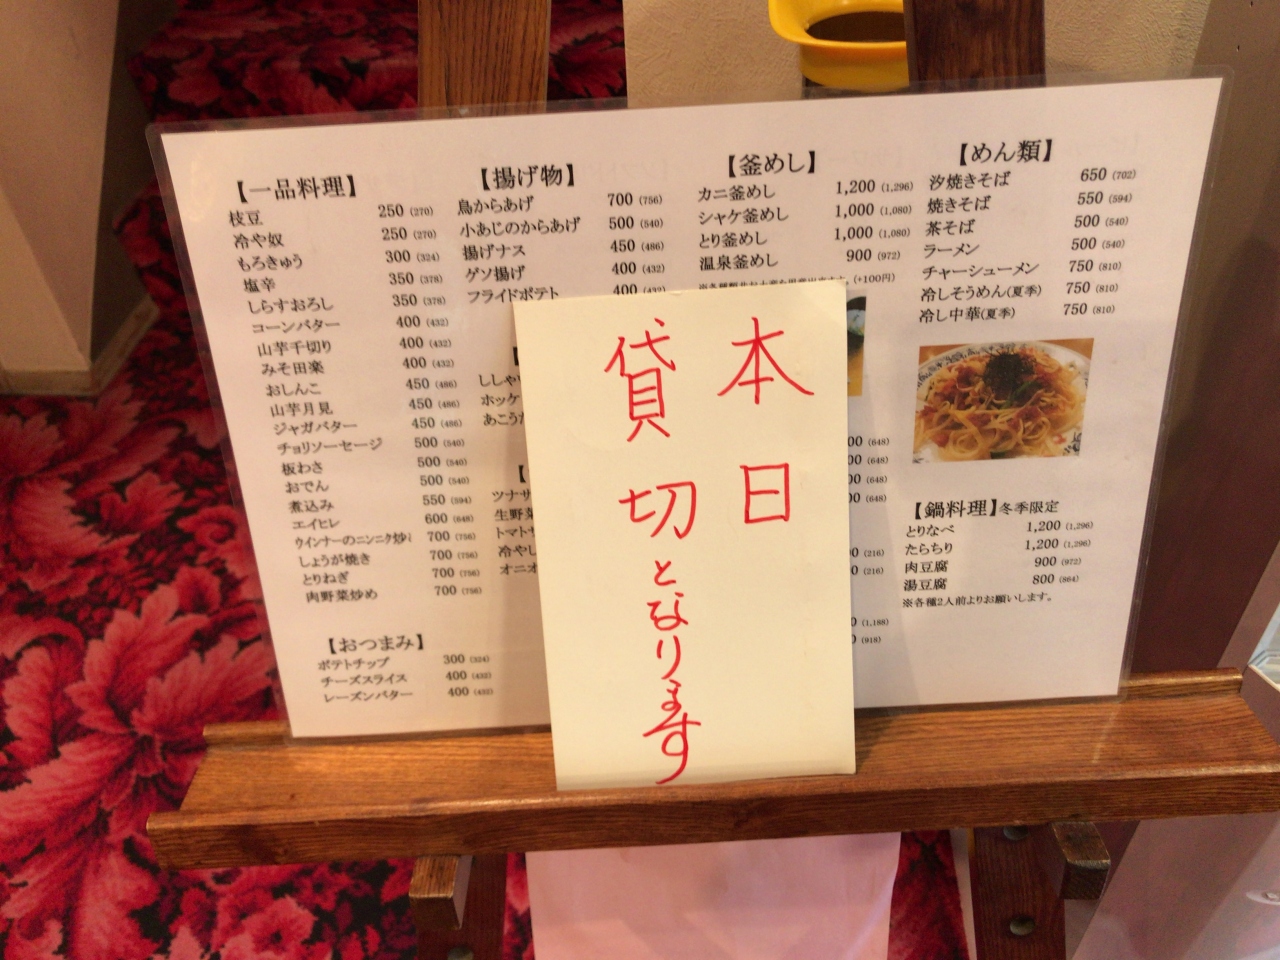 【一品料理】
枝豆 250 (270)
冷や奴 250 (270)
もろきゅう 300 (324)
塩辛 350 (378)
しらすおろし 350 (378)
コーンバター 400 (432)
山芋千切り 400 (432)
みそ田楽 400 (432)
おしんこ 450 (486)
山芋月見 450 (486)
ジャガバター 450 (486)
チョリソーセージ 500 (540)
板わさ 500 (540)
おでん 500 (540)
煮込み 550 (594)
エイヒレ 600 (648)
ウインナーのニンニク炒 700 (756)
しょうが焼き 700 (756)
とりねぎ 700 (756)
肉野菜炒め 700 (756)
【おつまみ】
ポテトチップ 300 (324)
チーズスライス 400 (432)
レーズンバター 400 (432)
【揚げ物】
鳥からあげ 700 (756)
小あじのからあげ 500 (540)
揚げナス 450 (486)
ゲソ揚げ 400 (432)
フライドポテト 400 (432)
ししゃ
ホッケ
あこう
ツナサ
生野菜
トマト
冷やし
オニオ
【釜めし】
カニ釜めし 1,200 (1,296)
シャケ釜めし 1,000 (1,080)
とり釜めし 1,000 (1,080)
温泉釜めし 900 (972)
(+100円)
00 (648)
00 (648)
00 (648)
00 (648)
00 (216)
00 (216)
0 (1,188)
0 (918)
【めん類】
汐焼きそば 650 (702)
焼きそば 550 (594)
茶そば 500 (540)
ラーメン 500 (540)
チャーシューメン 750 (810)
冷しそうめん(夏季) 750 (810)
冷し中華(夏季) 750 (810)
【鍋料理】冬季限定
とりなべ 1,200 (1,296)
たらちり 1,200 (1,296)
肉豆腐 900 (972)
湯豆腐 800 (864)
※各種2人前よりお願いします。
本日
貸切となります